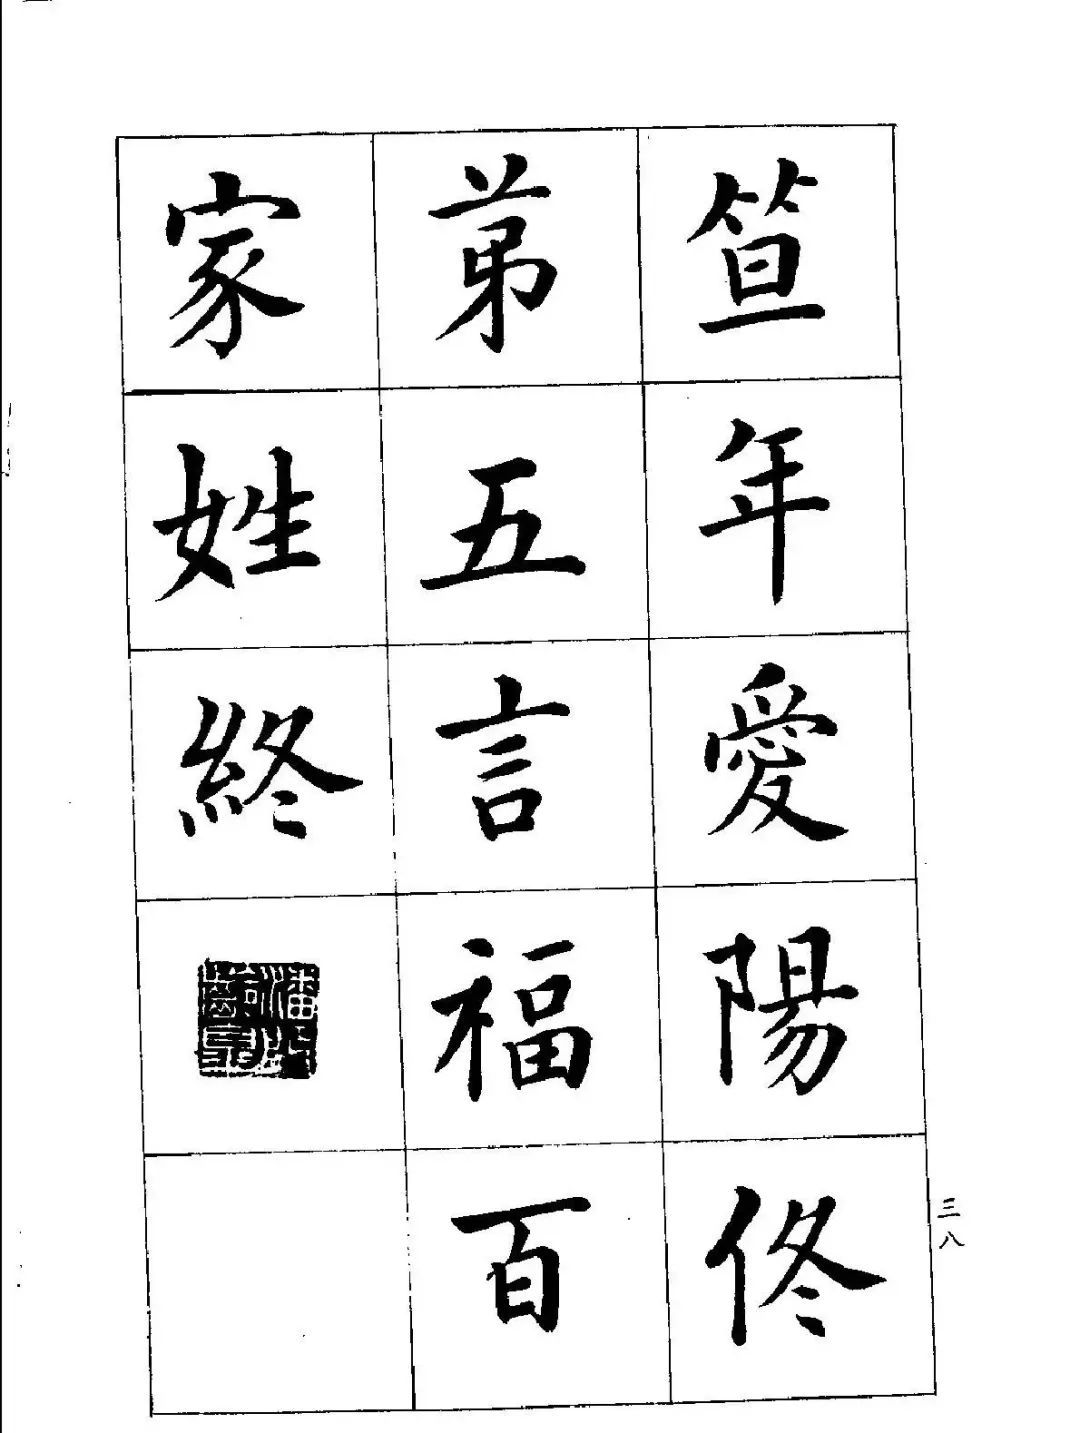 笪年愛陽佟
第五言福百
家姓終
三八